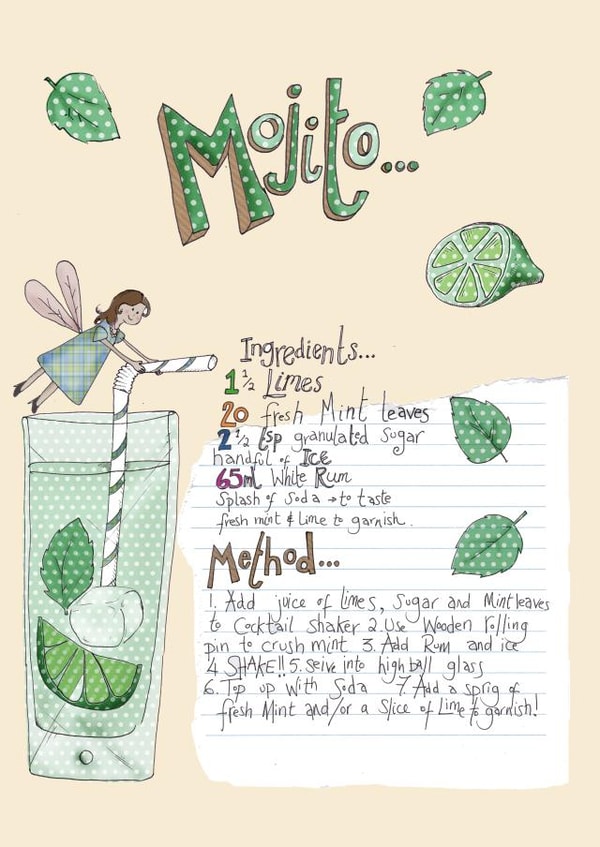 Mojito...
Ingredients...
1 1/2 Limes
20 fresh Mint leaves
2 1/2 tsp granulated Sugar
handful of Ice
65ml White Rum
Splash of Soda → to taste
fresh mint & Lime to garnish.
Method...
1. Add juice of limes, Sugar and Mint leaves
to Cocktail shaker 2. Use Wooden rolling
pin to crush mint 3. Add Rum and ice
4 SHAKE!! 5. Seive into highball glass
6. Top up With Soda 7. Add a sprig of
fresh Mint and/or a Slice of Lime to garnish!